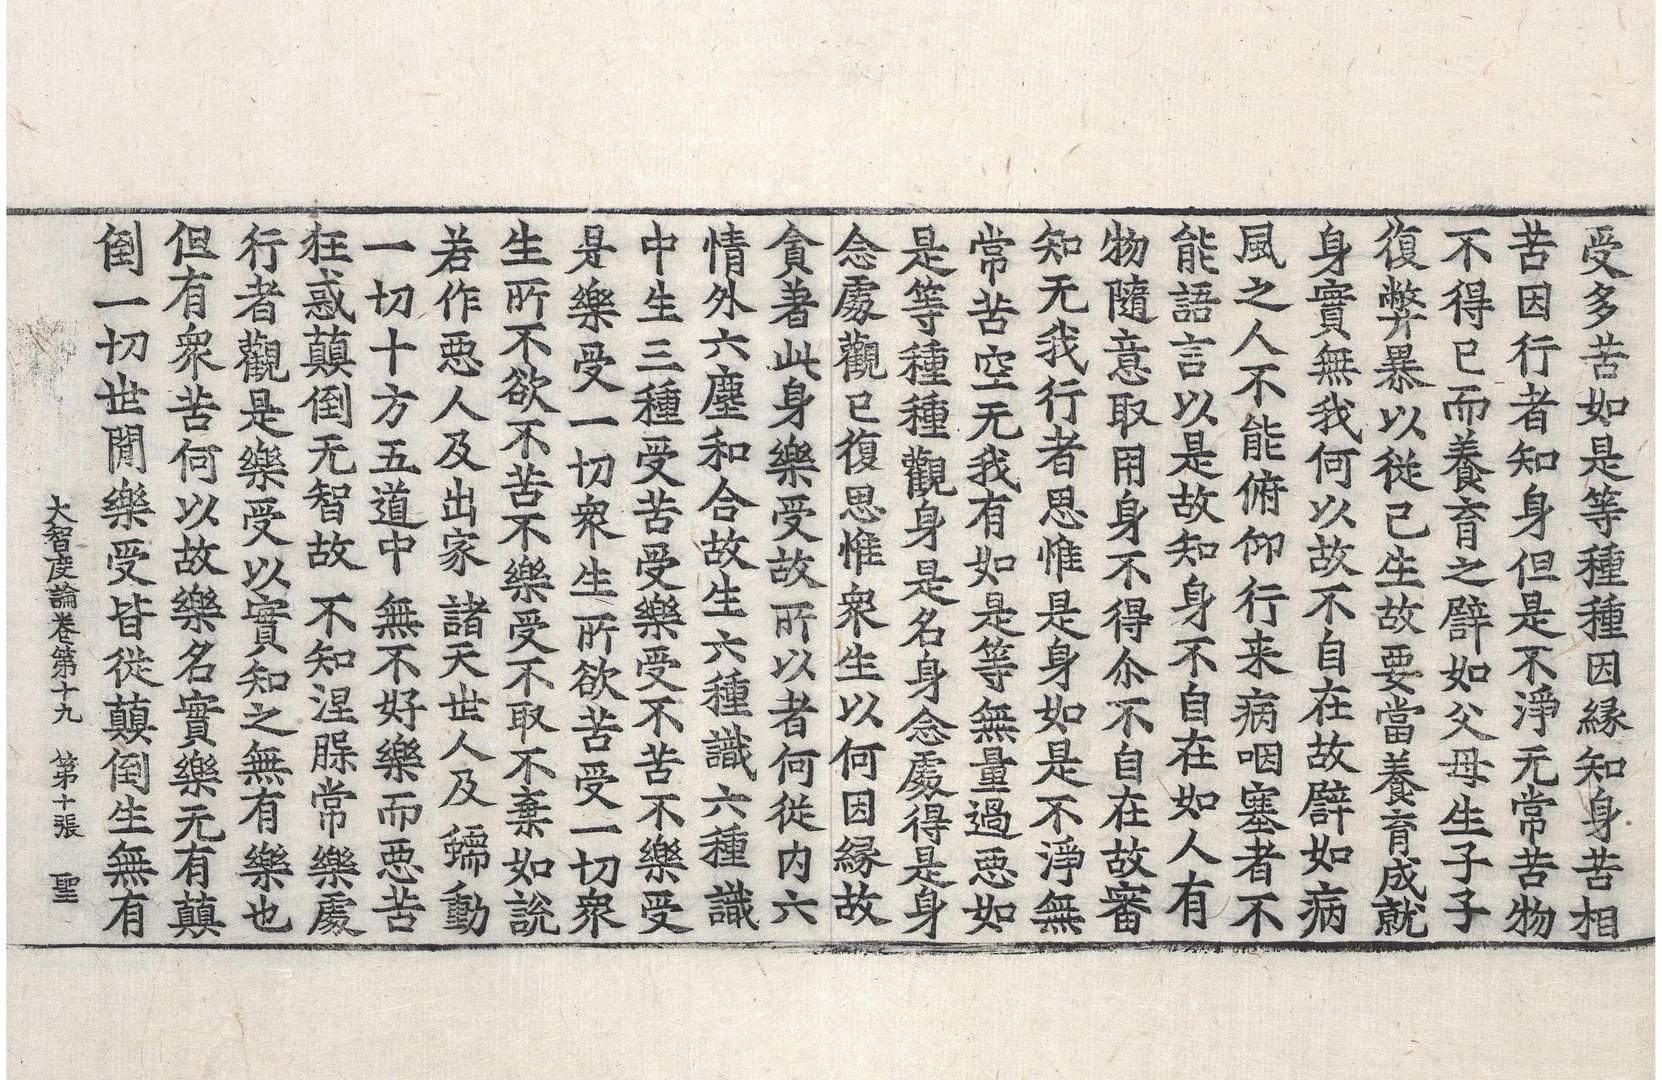 受多苦如是等種種因緣知身苦相
苦因行者知身但是不淨无常苦物
不得已而養育之譬如父母生子子
復弊暴以從己生故要當養育成就
身實無我何以故不自在故譬如病
風之人不能俯仰行来病咽塞者不
能語言以是故知身不自在如人有
物隨意取用身不得尒不自在故審
知无我行者思惟是身如是不淨無
常苦空无我有如是等無量過惡如
是等種種觀身是名身念處得是身
念處觀已復思惟衆生以何因緣故
貪著此身樂受故所以者何從内六
情外六塵和合故生六種識六種識
中生三種受苦受樂受不苦不樂受
是樂受一切衆生所欲苦受一切衆
生所不欲不苦不樂受不取不棄如説
若作惡人及出家諸天世人及蠕動
一切十方五道中無不好樂而惡苦
狂惑顛倒无智故不知涅槃常樂處
行者觀是樂受以實知之無有樂也
但有衆苦何以故樂名實樂无有顛
倒一切世閒樂受皆從顛倒生無有
大智度論卷第十九 第十張 聖